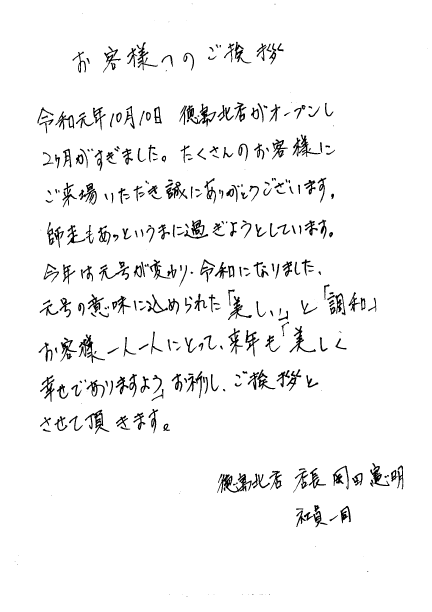 お客様へのご挨拶
令和元年10月10日 徳島北店がオープンし
2ヶ月がすぎました。たくさんのお客様に
ご来場いただき誠にありがとうございます。
師走もあっというまに過ぎようとしています。
今年は元号が変わり、令和になりました、
元号の意味に込められた「美しい」と「調和」
お客様一人一人にとって、来年も「美しく
幸せでありますよう」お祈りし、ご挨拶と
させて頂きます。
徳島北店 店長 岡田憲明
社員一同